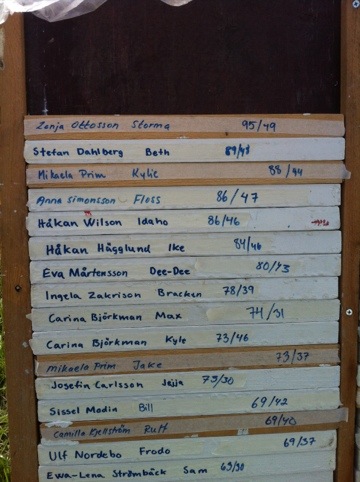 Zonja Ottosson Storma 95/49
Stefan Dahlberg Beth 89/48
Mikaela Prim Kylie 88/44
Anna Simonsson Floss 86/47
Håkan Wilson Idaho 86/46
Håkan Hägglund Ike 84/46
Eva Mårtensson Dee-Dee 80/43
Ingela Zakrison Bracken 78/39
Carina Björkman Max 74/31
Carina Björkman Kyle 73/46
Mikaela Prim Jake 73/37
Josefin Carlsson Jajja 73/30
Sissel Modin Bill 69/42
Camilla Kjellström Ruff 69/40
Ulf Nordebo Frodo 69/37
Ewa-Lena Strömbäck Sam 63/30